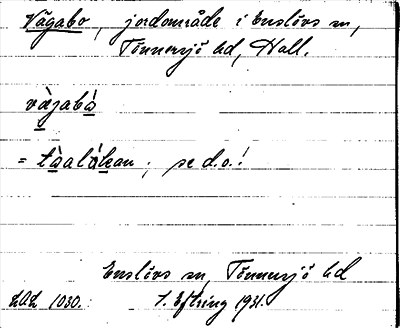 Vägabo, jordområde i Enslövs sn,
Tönnersjö hd, Hall.
vàgabå
= tàalákan; se d.o.!
Enslövs sn, Tönnersjö hd
LAL 1030. 1. Eftring 1931.